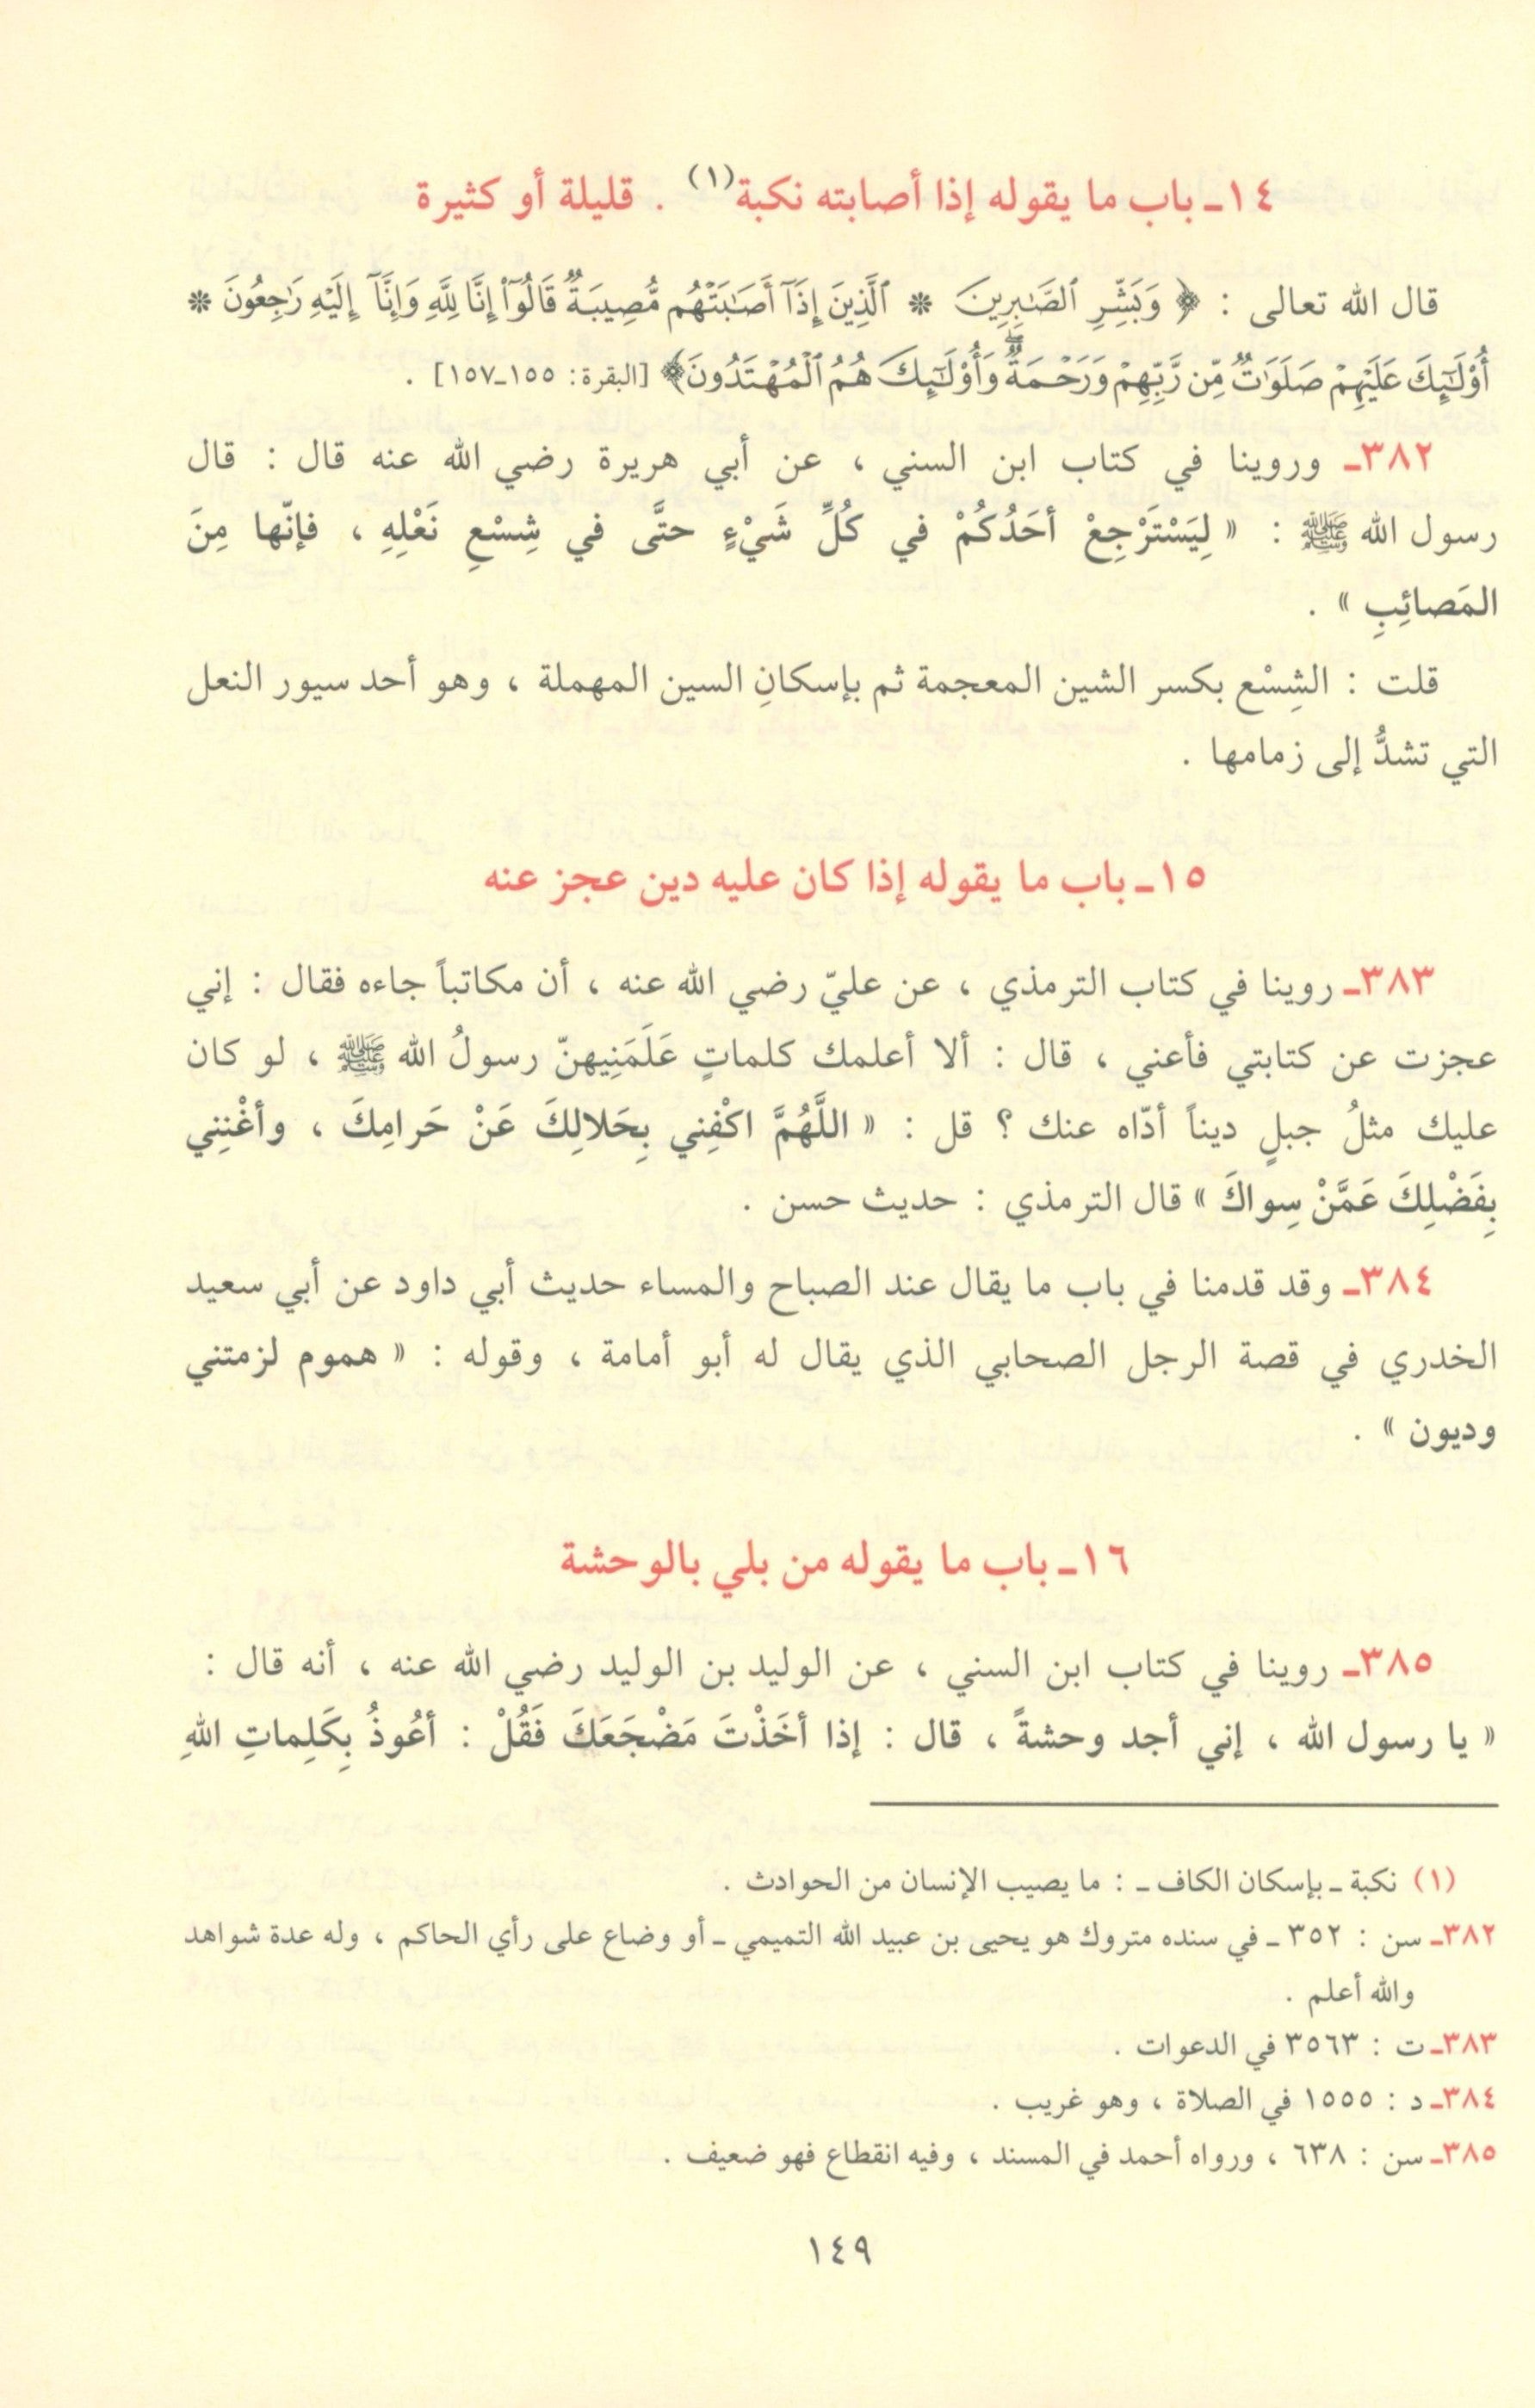 ١٤ـ باب ما يقوله إذا أصابته نكبة(١) . قليلة أو كثيرة
قال الله تعالى : ﴿ وَبَشِّرِ ٱلصَّٰبِرِينَ * ٱلَّذِينَ إِذَآ أَصَٰبَتْهُم مُّصِيبَةٌ قَالُوٓا۟ إِنَّا لِلَّهِ وَإِنَّآ إِلَيْهِ رَٰجِعُونَ *
أُو۟لَٰٓئِكَ عَلَيْهِمْ صَلَوَٰتٌ مِّن رَّبِّهِمْ وَرَحْمَةٌ ۖ وَأُو۟لَٰٓئِكَ هُمُ ٱلْمُهْتَدُونَ﴾ [البقرة: ١٥٥ـ١٥٧] .
٣٨٢ـ وروينا في كتاب ابن السني ، عن أبي هريرة رضي الله عنه قال : قال
رسول الله ﷺ : « لِيَسْتَرْجِعْ أحَدُكُمْ في كُلِّ شَيْءٍ حتَّى في شِسْعِ نَعْلِهِ ، فإنّها مِنَ
المَصائِبِ » .
قلت : الشِسْع بكسر الشين المعجمة ثم بإسكانِ السين المهملة ، وهو أحد سيور النعل
التي تشدُّ إلى زمامها .
١٥ـ باب ما يقوله إذا كان عليه دين عجز عنه
٣٨٣ـ روينا في كتاب الترمذي ، عن عليّ رضي الله عنه ، أن مكاتباً جاءه فقال : إني
عجزت عن كتابتي فأعني ، قال : ألا أعلمك كلماتٍ عَلَمَنِيهنّ رسولُ الله ﷺ ، لو كان
عليك مثلُ جبلٍ ديناً أدّاه عنك ؟ قل : « اللَّهُمَّ اكْفِني بِحَلالِكَ عَنْ حَرامِكَ ، وأغْنِني
بِفَضْلِكَ عَمَّنْ سِواكَ » قال الترمذي : حديث حسن .
٣٨٤ـ وقد قدمنا في باب ما يقال عند الصباح والمساء حديث أبي داود عن أبي سعيد
الخدري في قصة الرجل الصحابي الذي يقال له أبو أمامة ، وقوله : « هموم لزمتني
وديون » .
١٦ـ باب ما يقوله من بلي بالوحشة
٣٨٥ـ روينا في كتاب ابن السني ، عن الوليد بن الوليد رضي الله عنه ، أنه قال :
« يا رسول الله ، إني أجد وحشةً ، قال : إذا أخَذْتَ مَضْجَعَكَ فَقُلْ : أعُوذُ بِكَلِماتِ اللهِ
(١) نكبة ـ بإسكان الكاف ـ : ما يصيب الإنسان من الحوادث .
٣٨٢ـ سن : ٣٥٢ ـ في سنده متروك هو يحيى بن عبيد الله التميمي ـ أو وضاع على رأي الحاكم ، وله عدة شواهد
والله أعلم .
٣٨٣ـ ت : ٣٥٦٣ في الدعوات .
٣٨٤ـ د : ١٥٥٥ في الصلاة ، وهو غريب .
٣٨٥ـ سن : ٦٣٨ ، ورواه أحمد في المسند ، وفيه انقطاع فهو ضعيف .
١٤٩